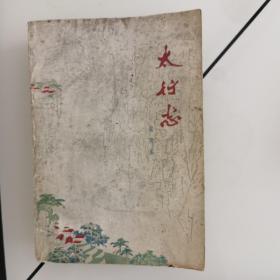 太行志